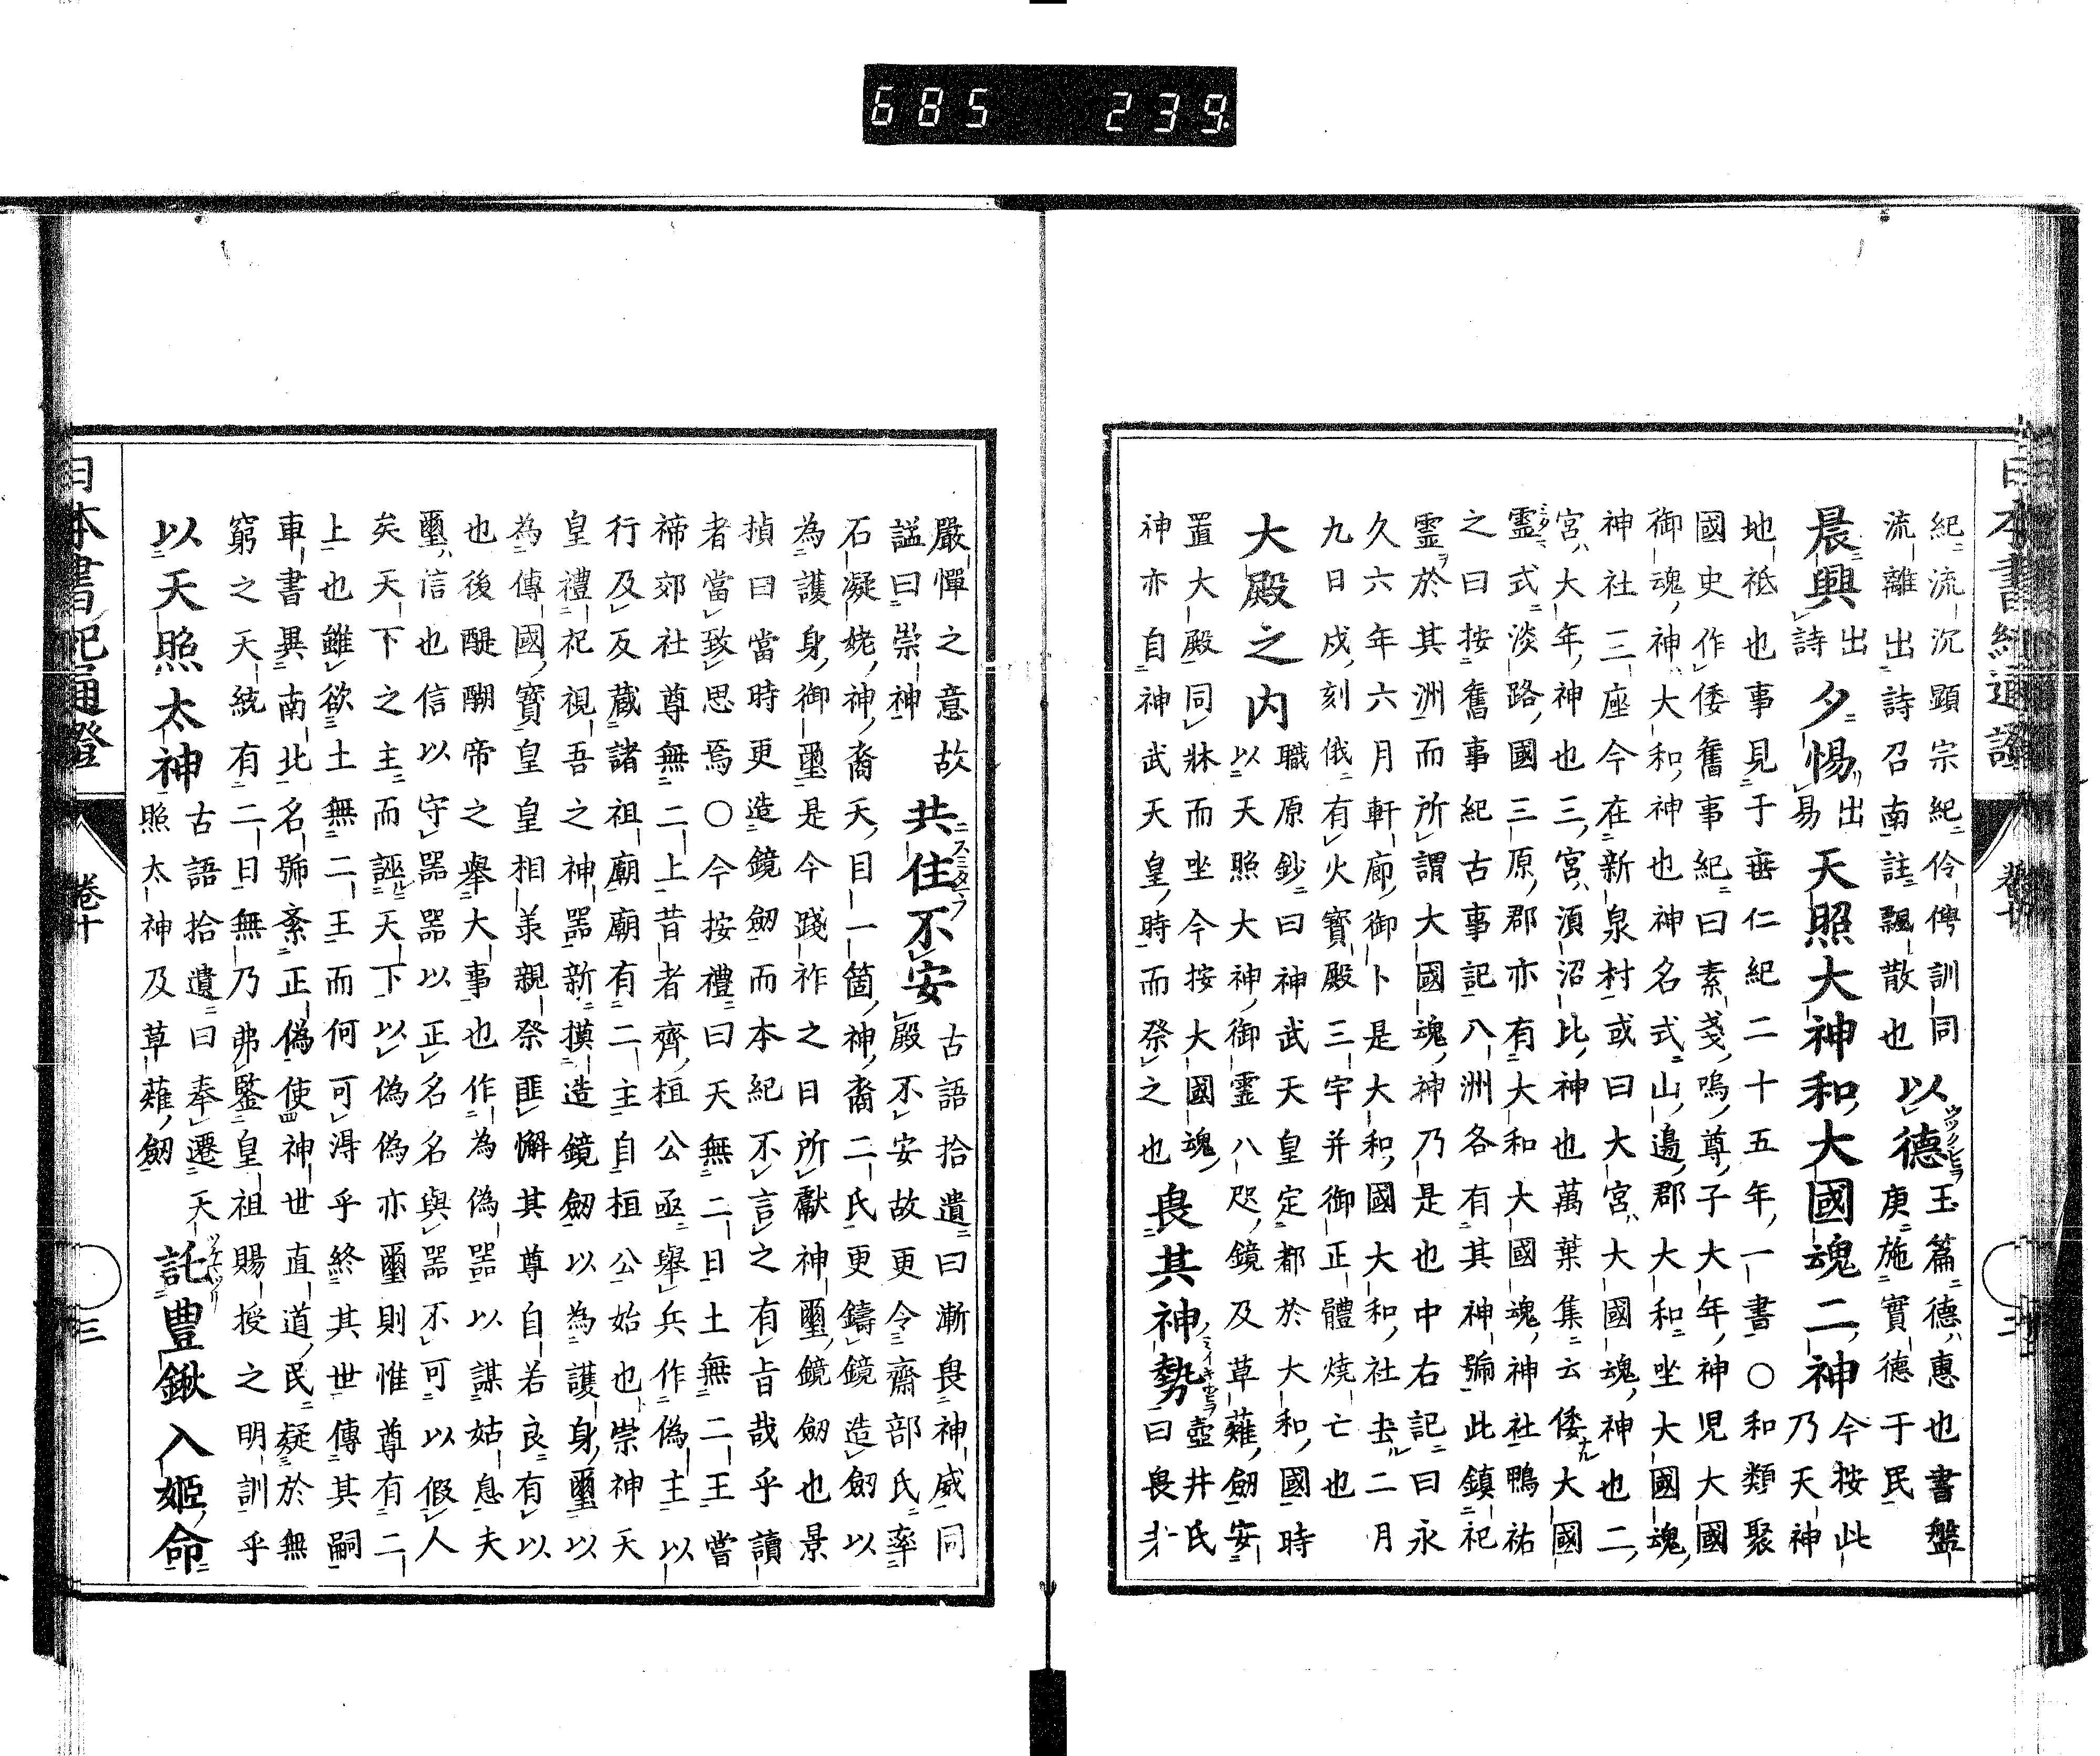 685 239
紀流沉顕宗紀伶俜訓同 以德 玉篇德惠也書盤
流離出詩召南註飄散也 庚施實德于民
晨興 出詩 夕惕 出易 天照大神和大國魂二神 今按此乃天神
地祗也事見于垂仁紀二十五年一書〇和類聚
國史作倭舊事紀曰素戔嗚尊子大年神児大國
御魂神大和神也神名式山邊郡大和坐大國魂
神社三座今在新泉村或曰大宮大國魂神也二
宮大年神也三宮須沼比神也萬葉集云倭大國
靈式淡路國三原郡亦有大和大國魂神社鴨祐
之曰按舊事紀古事記八洲各有其神號此鎮祀
靈於其洲而所謂大國魂神乃是也中右記曰永
久六年六月軒廊御卜是大和國大和社去二月
九日戍刻俄有火寳殿三宇并御正體燒亡也
大殿之内 職原鈔曰神武天皇定都於大和國時
以天照大神御霊八咫鏡及草薙劔安
置大殿同牀而坐今按大國魂
神亦自神武天皇時而祭之也 畏其神勢 壺井氏
曰畏才
日本書紀通證 卷十 三
嚴憚之意故 共住不安 古語拾遺曰漸畏神威同
謚曰崇神 殿不安故更令齋部氏率
石凝姥神裔天目一箇神裔二氏更鑄鏡造劔以
為護身御璽是今踐祚之日所獻神璽鏡劔也景
揁曰當時更造鏡劔而本紀不言之有旨哉乎讀
者當致思焉〇今按禮曰天無二日土無二王嘗
禘郊社尊無二上昔者齊桓公亟舉兵作偽主以
行及反蔵諸祖廟廟有二主自桓公始也崇神天
皇禮祀視吾之神器新摸造鏡劔以為護身璽以
為傳國寳皇皇相羕親祭匪懈其尊自若良有以
也後醍醐帝之舉大事也作為偽器以謀姑息夫
璽信也信以守器器以正名名與器不可以假人
矣天下之主而誣天下以偽偽亦璽則惟尊有二
上也雖欲土無二王而何可淂乎終其世傳其嗣
車書異南北名號紊正偽使神世直道民疑於無
窮之天統有二日無乃弗鑒皇祖賜授之明訓乎
以天照太神 古語拾遺曰奉遷天
照太神及草薙劔 託豊鍬入姬命
日本書紀通證 卷十 三